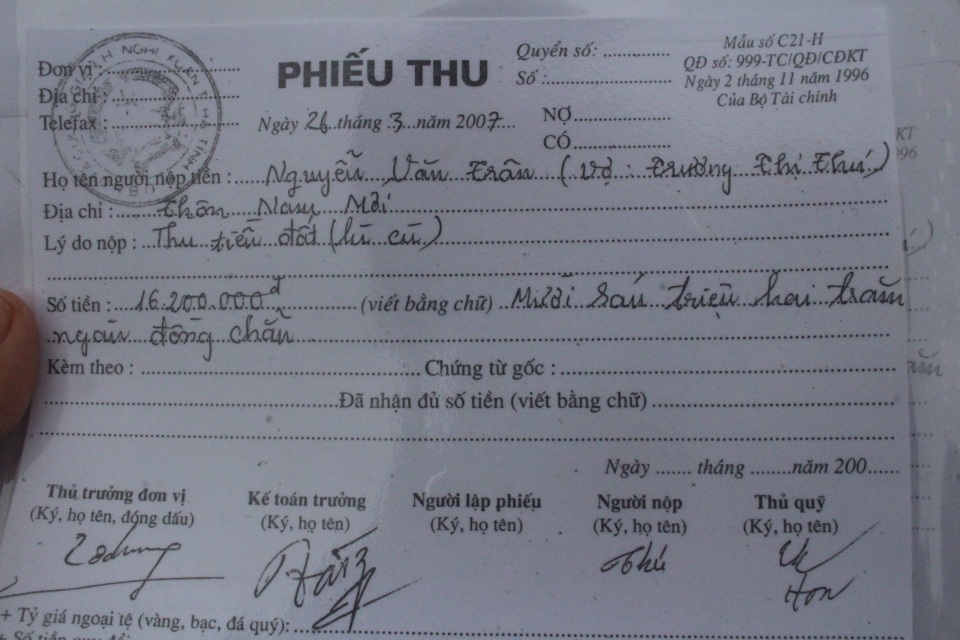 Đơn vị :
Địa chỉ :
Telefax :
PHIẾU THU
Quyển số:
Số :
Mẫu số C21-H
QĐ số: 999-TC/QĐ/CĐKT
Ngày 2 tháng 11 năm 1996
Của Bộ Tài chính
Ngày 26 tháng 3 năm 2007
NỢ
CÓ
Họ tên người nộp tiền : Nguyễn Văn Trân (vợ: Trương Thị Thú)
Địa chỉ : thôn Nam Mới
Lý do nộp : Thu tiền đất (lũ cũ)
Số tiền : 16.200.000đ (viết bằng chữ) Mười sáu triệu hai trăm
ngàn đồng chẵn
Kèm theo : Chứng từ gốc :
Đã nhận đủ số tiền (viết bằng chữ)
Ngày tháng năm 200
Thủ trưởng đơn vị
(Ký, họ tên, đóng dấu)
Kế toán trưởng
(Ký, họ tên)
Người lập phiếu
(Ký, họ tên)
Người nộp
(Ký, họ tên)
Thủ quỹ
(Ký, họ tên)
Thú
+ Tỷ giá ngoại tệ (vàng, bạc, đá quý):
+ Số tiền quy đổi: